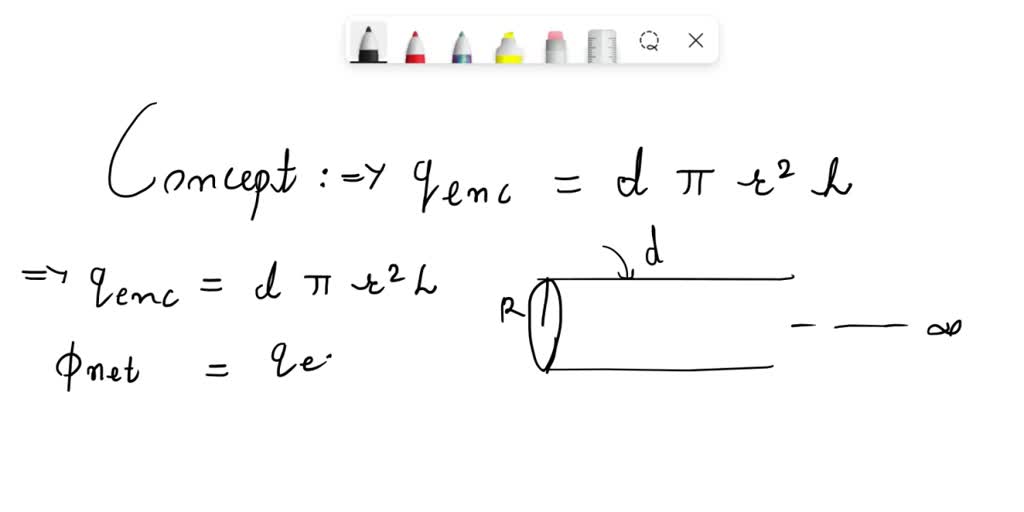 Concept : => qenc = d π r² h
=> qenc = d π r² h
d
R
∞
ϕnet = qe